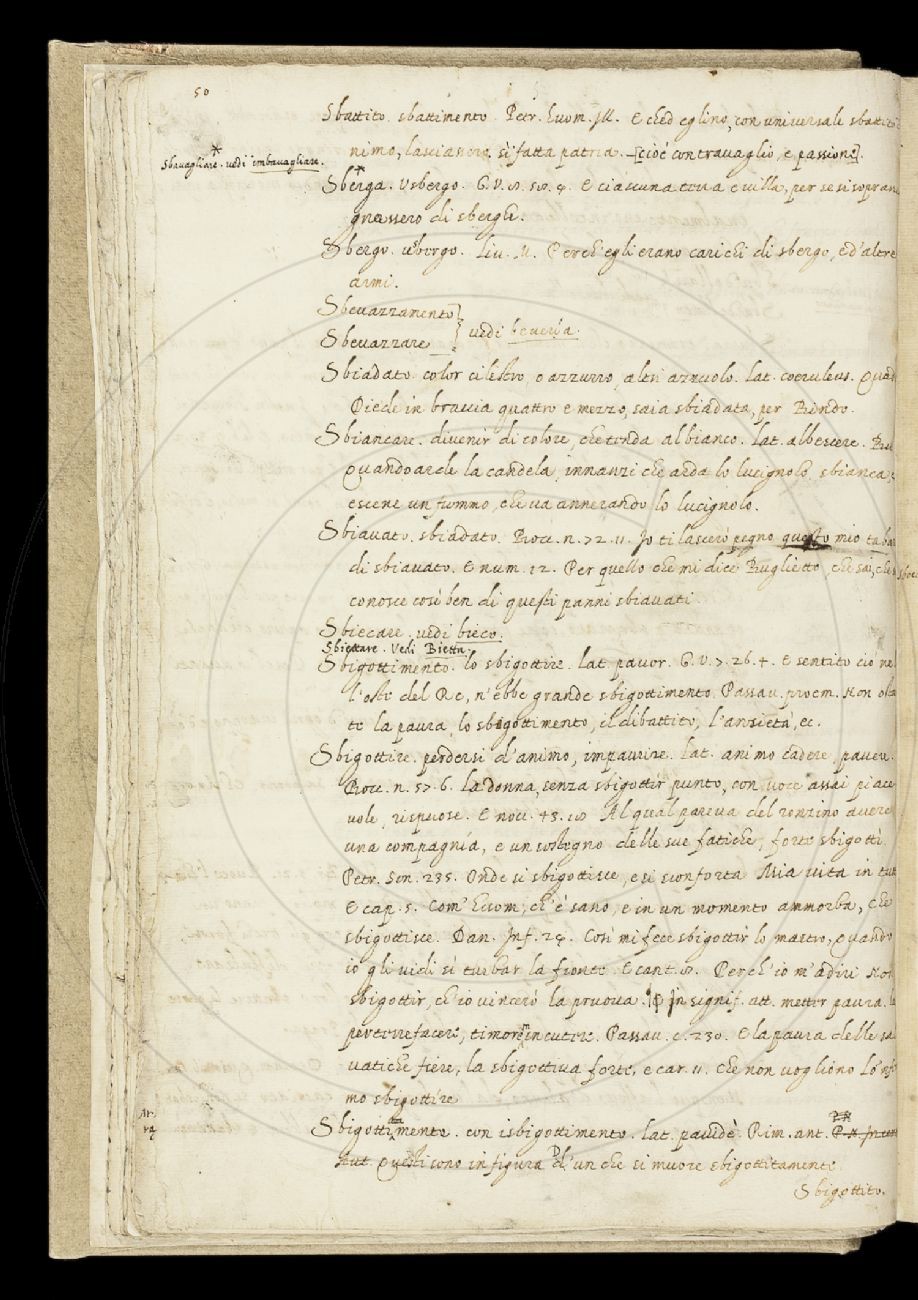 50
Sbattito. sbattimento. Petr. huom. ill. E ched eglino, con universale sbatti
nimo, lasciassero si fatta patria. [cioè con travaglio, e passione].
Sbavagliare. vedi imbavagliare.
Sberga. Usbergo. G. V. E ciascuna terra e villa, per se si sopran
gnassero di sberghe.
Sbergo. usbergo. Liv. M. Perch' egli erano carichi di sbergo, ed' altre
armi.
Sbevazzamento
Sbevazzare } vedi bevería.
Sbiadato. color cilestro, o azzurro, altri azzuolo. Lat. coeruleus. Quad
Diede in braccia quattro e mezzo, saia sbiadata, per Bindo.
Sbiancare. divenir di colore, che tenda al bianco. Lat. albescere.
Quando arde la candela, innanzi che arda lo lucignolo, sbianca,
escene un fummo, che va annerando lo lucignolo.
Sbiavato. sbiadato. Bocc. n. 72. 11. Io ti lascerò pegno questo mio tabar
di sbiavato. E num. 12. Per quello che mi dice Buglietto, che sai, che
conosce così ben di questi panni sbiavati
Sbiecare. vedi bieco.
Sbiettare. Vedi Bietta.
Sbigottimento. lo sbigottire. Lat. pavor. G. V. 7. 26. 4. E sentito ciò ne
l'oste del Re, n'ebbe grande sbigottimento. Passav. proem. Non ota
te la paura, lo sbigottimento, il dibattito, l'ansietà, ec.
Sbigottire. perdersi d'animo, impaurire. Lat. animo cadere, pavere.
Bocc. n. 57. 6. La donna, senza sbigottir punto, con voce assai piace
vole, rispuose. E nov. 43. 10 Al qual pareva del ronzino avere
una compagnía, e un sostegno delle sue fatiche, forte sbigottì
Petr. Son. 235. Onde si sbigottisce, e si sconforta Mia vita in tut
E cap. 5. Com' huom, ch'è sano, e in un momento ammorba, Che
sbigottisce. Dan. Inf. 24. Così mi fece sbigottir lo mastro, Quando
io gli vidi sì turbar la fronte. E cant. 8. Perch' io m'adiri Non
sbigottir, ch' io vincerò la pruova. In signif. att. metter paura.
perterrefacere, timorem incutere. Passav. c. 230. E la paura delle sal
vatiche fiere, la sbigottiva forte, e car. 11. Che non vogliono lo'nfer
mo sbigottire
Sbigottitamente. con isbigottimento. Lat. pavidè. Rim. ant.
Questi sono in figura d'un che si muore sbigottitamente
Sbigottito.